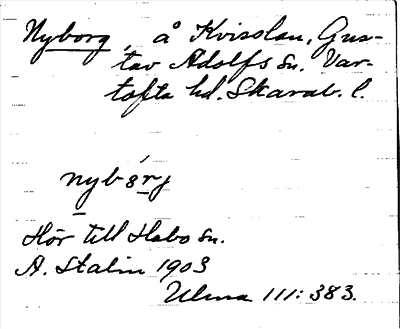 Nyborg, å Kvisslau, Gus-
tav Adolfs sn. Var-
tofta hd. Skarab. l.
nybórj
Hör till Habo sn.
A. Stalin 1903
Ulma 111: 383.